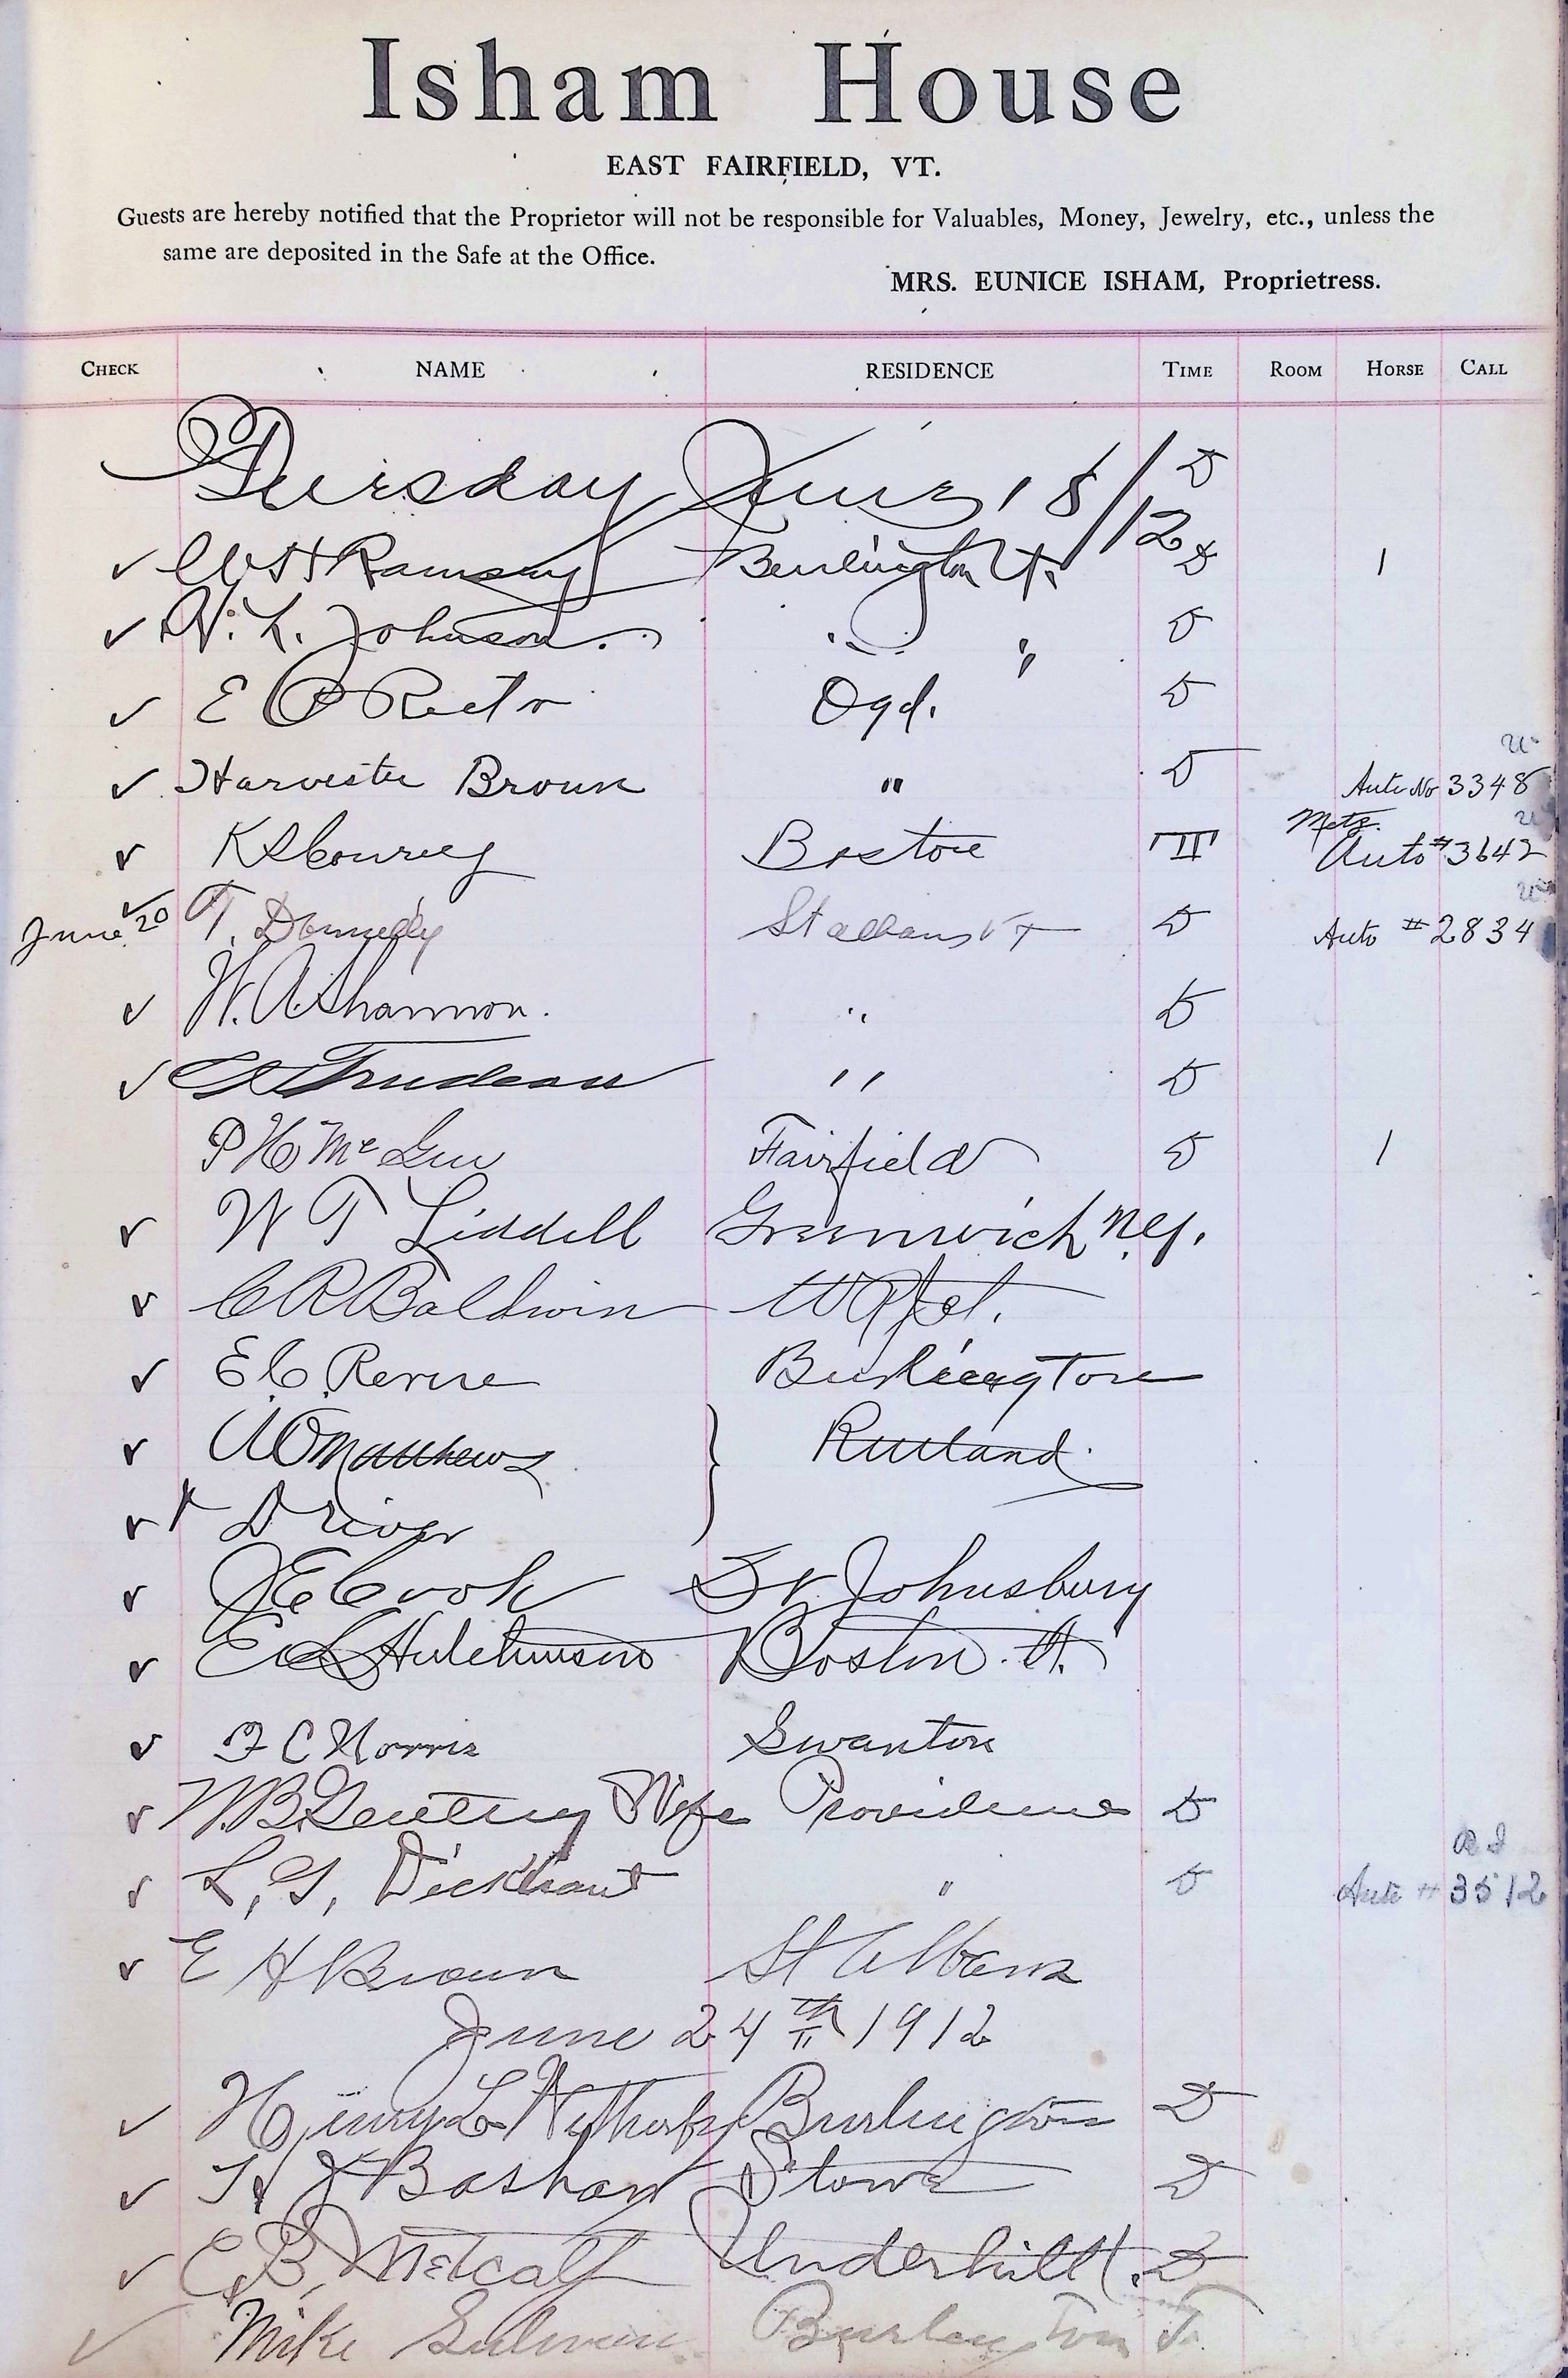 Isham House
EAST FAIRFIELD, VT.
Guests are hereby notified that the Proprietor will not be responsible for Valuables, Money, Jewelry, etc., unless the
same are deposited in the Safe at the Office.
MRS. EUNICE ISHAM, Proprietress.
CHECK NAME RESIDENCE TIME ROOM HORSE CALL
June 18/12 D
✓ Ramsay Burlington Vt. D 1
✓ Johnson. " " D
✓ E Rector Ogd. D
✓ Harvester Brown " D Auto No 3348
✓ Boston Metz. Auto # 3642
✓ June 20 T. Donnelly St albans VT D Auto # 2834
✓ W. A. Shannon. " D
✓ Trudeau " D
P H Mc Fairfield D 1
✓ W T Liddell Greenwich N.Y.
✓ C R Baldwin
✓ E. C. Revere Burlington
✓ Matthews } Rutland
✓ + Driver
✓ J E Cook St. Johnsbury
✓ E L Hutchinson Boston.
✓ F C Norris Swanton
✓ W. B. Wife Providence D
✓ L, G, " D Auto # 3512 R I
✓ E H Brown St Albans
June 24th 1912
✓ Henry L Burlington D
✓ Bashaw Stowe D
✓ E. B. Metcalf Underhill D
✓ Mike Burlington